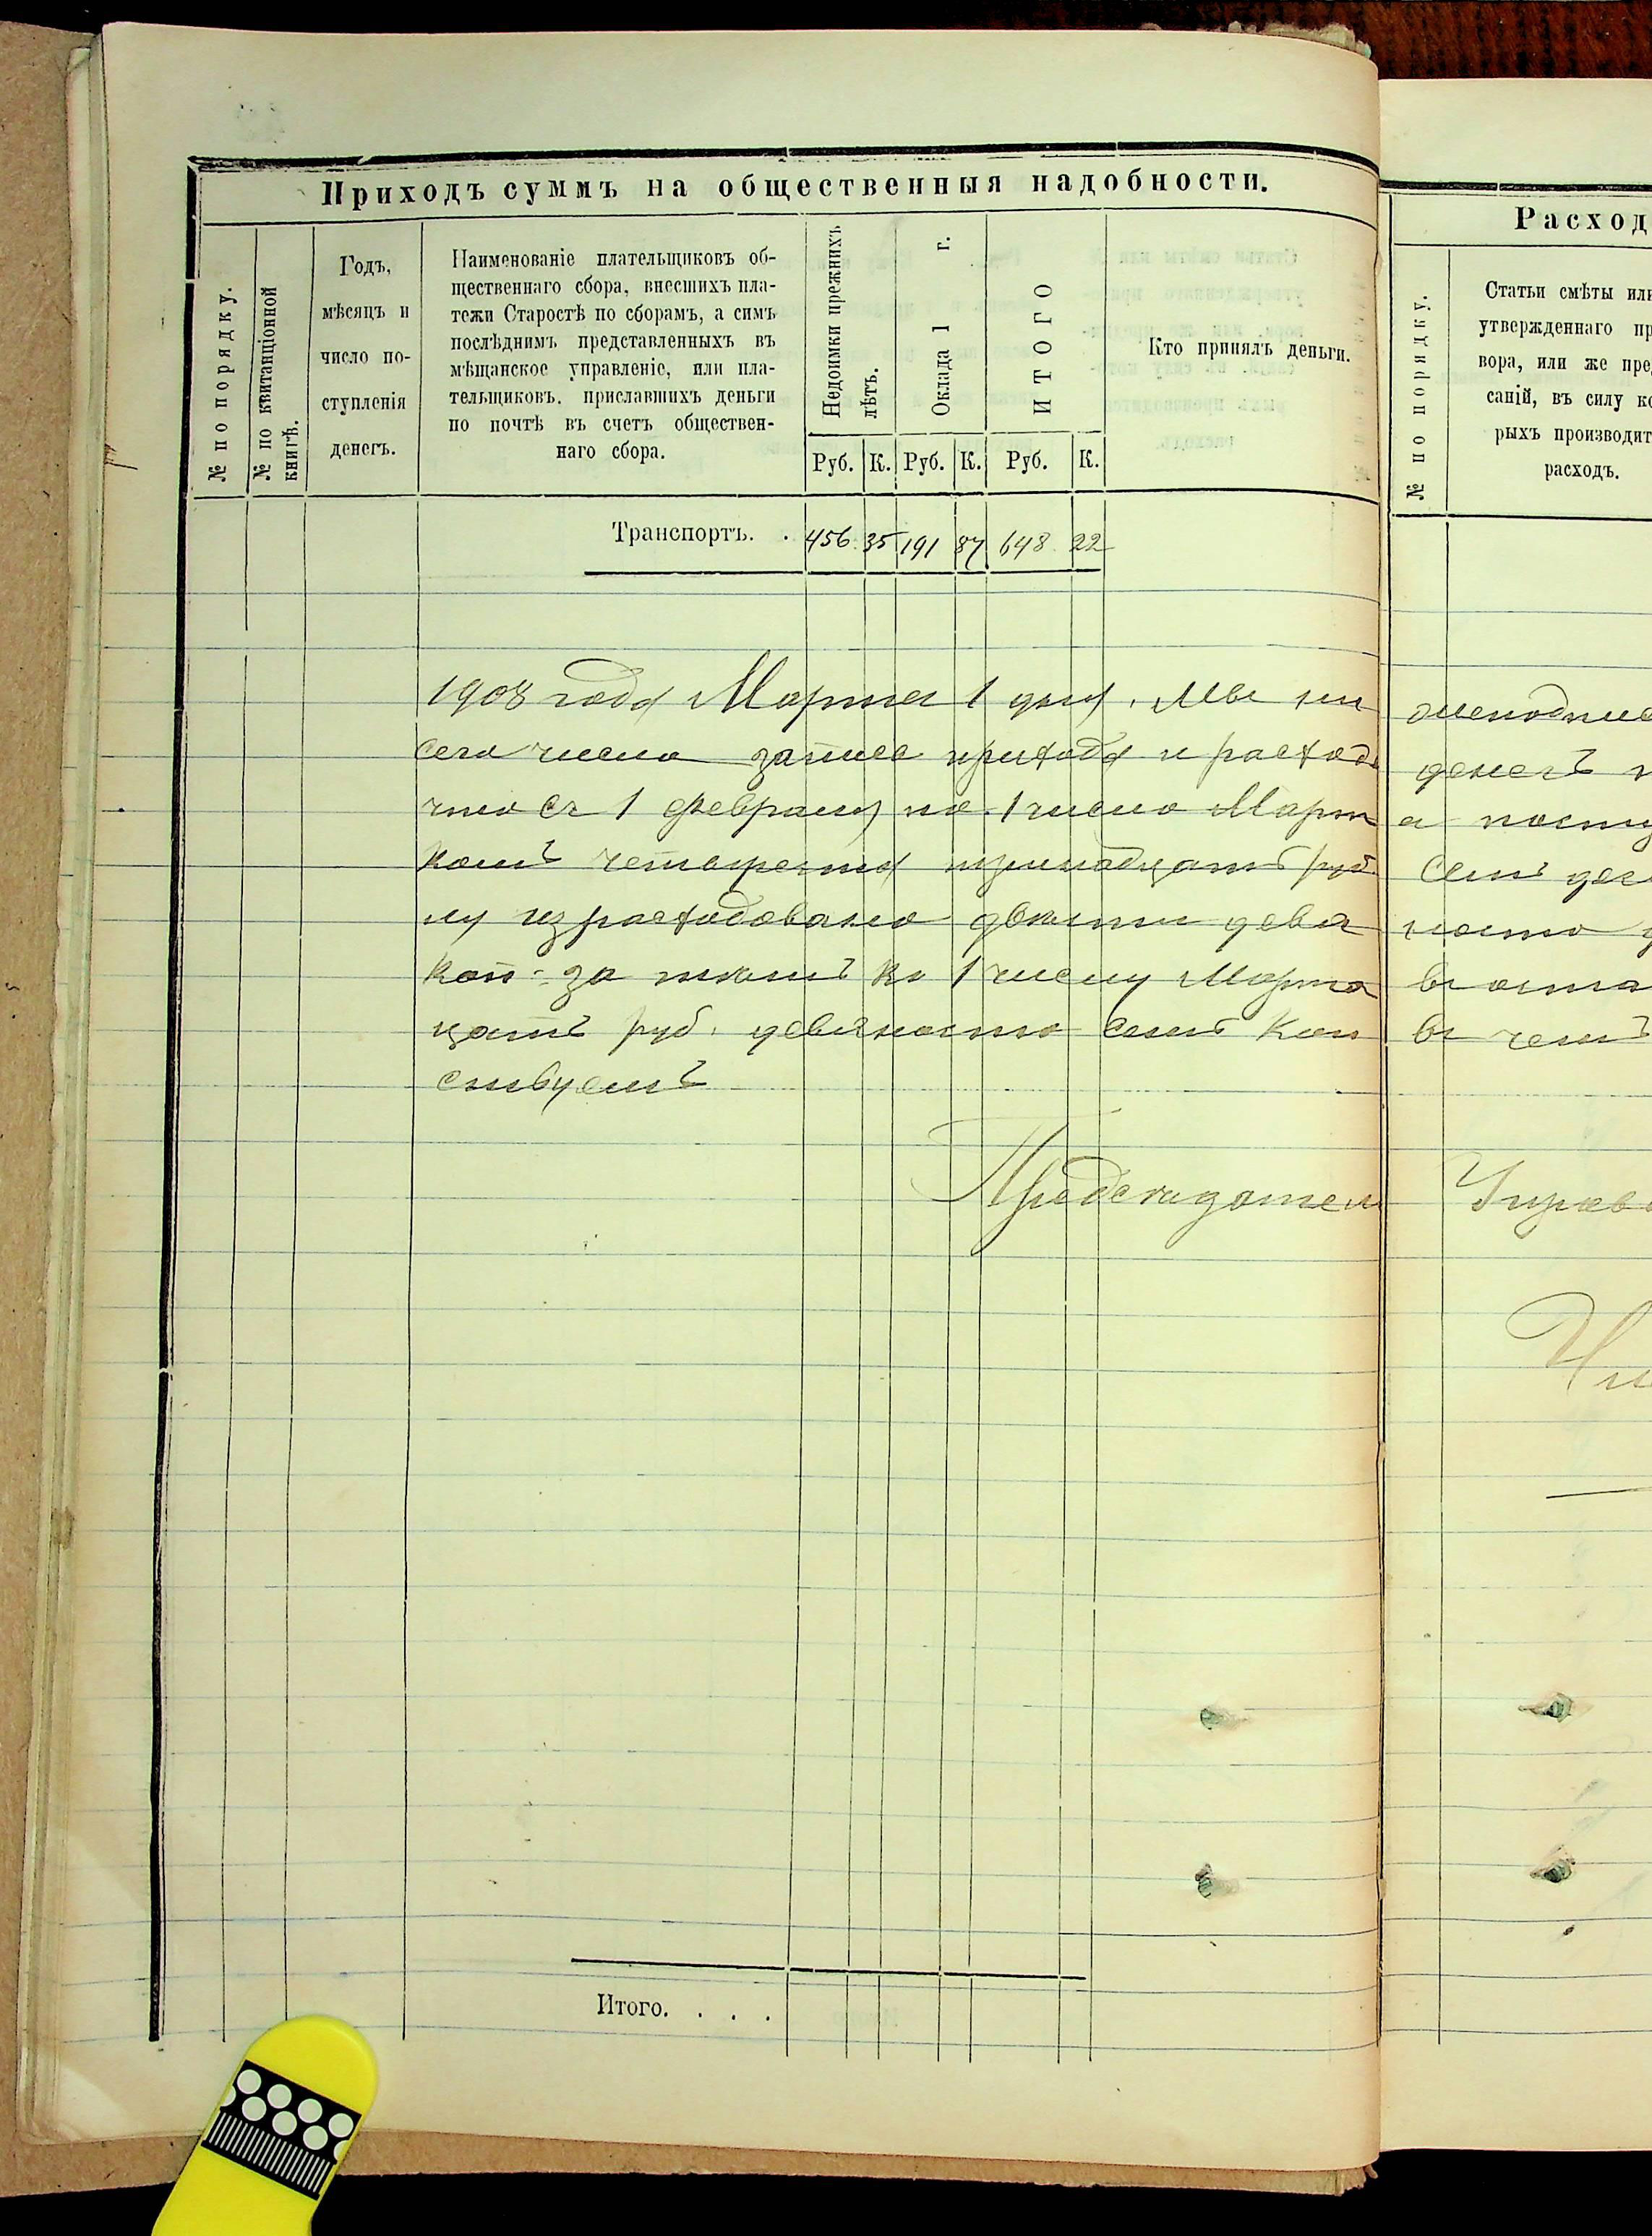 Приходъ суммъ на общественныя надобности.
№ по порядку.
№ по квитанціонной книгѣ.
Годъ,
мѣсяцъ и
число по-
ступленія
денегъ.
Наименованіе плательщиковъ об-
щественнаго сбора, внесшихъ пла-
тежи Старостѣ по сборамъ, а симъ
послѣднимъ представленныхъ въ
мѣщанское управленіе, или пла-
тельщиковъ, приславшихъ деньги
по почтѣ въ счетъ обществен-
наго сбора.
Недоимки прежнихъ лѣтъ.
Оклада 1 г.
ИТОГО
Руб. К. Руб. К. Руб. К.
Кто принялъ деньги.
Транспортъ. . 456 35 191 87 648 22
1908 года Марта 1 дня. Мы
сего числа прихода и расход
что съ 1 февраля по 1 число Март
комъ четыреста руб.
израсходовано двѣсти девя
коп. за тѣмъ къ 1 числу Марта
цать руб. девяносто семь коп
ствуемъ
Предсѣдатель
Итого. . . .
Расход
№ по порядку.
Статьи смѣты или
утвержденнаго пр
вора, или же пре
саній, въ силу ко
рыхъ производит
расходъ.
денегъ
а посту
семь
носто
въ оста
въ чемъ
Управ